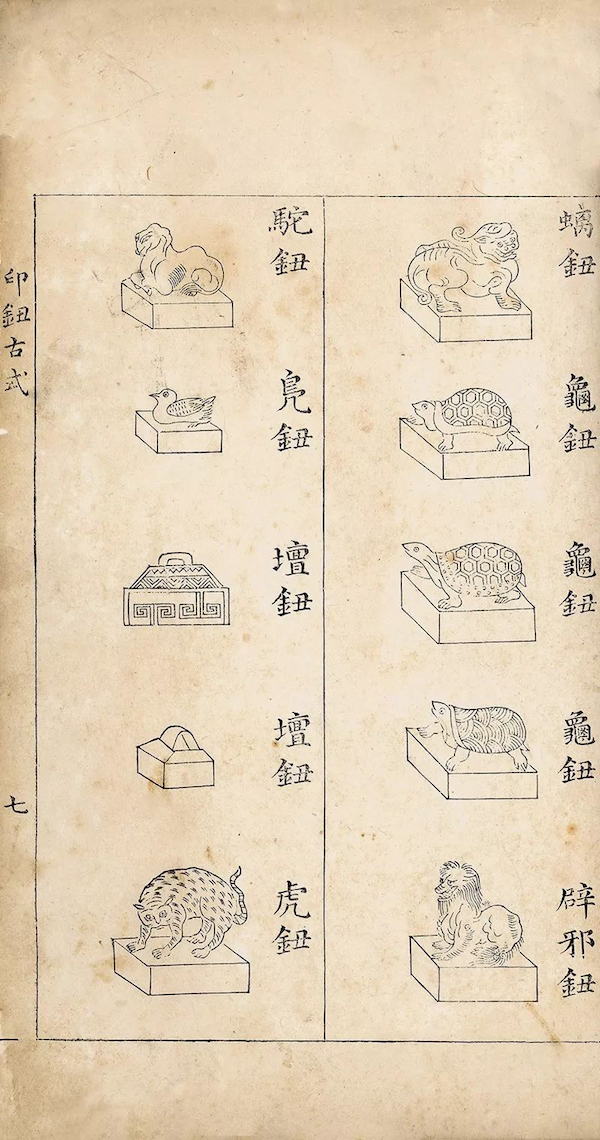 螭鈕
龜鈕
龜鈕
龜鈕
辟邪鈕
駝鈕
鳧鈕
壇鈕
壇鈕
虎鈕
印鈕古式
七